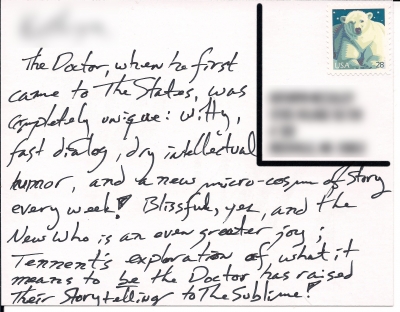 The Doctor, when he first
came to The States, was
completely unique: witty,
fast dialog, dry intellectual
humor, and a new micro-cosm of story
every week! Blissful, yes, and the
New Who is an even greater joy;
Tennent's exploration of what it
means to be the Doctor has raised
their storytelling to The Sublime!
USA 28